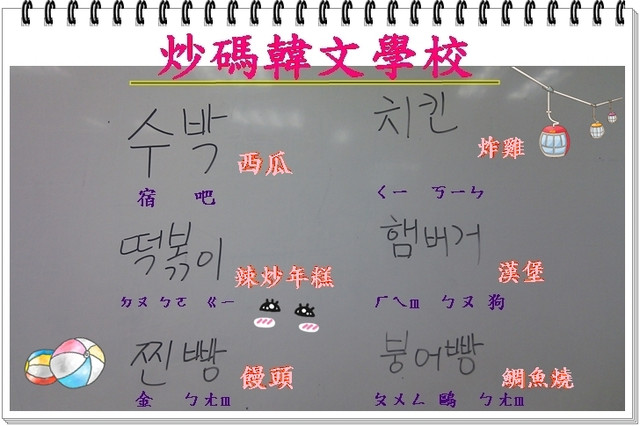 炒碼韓文學校
수박 西瓜
宿 吧
치킨 炸雞
ㄑㄧ ㄎㄧㄣ
떡볶이 辣炒年糕
ㄉㄡ ㄅㄛ ㄍㄧ
햄버거 漢堡
ㄏㄟm ㄅㄡ 狗
찐빵 饅頭
金 ㄅㄤm
붕어빵 鯛魚燒
ㄆㄨㄥ 鷗 ㄅㄤm